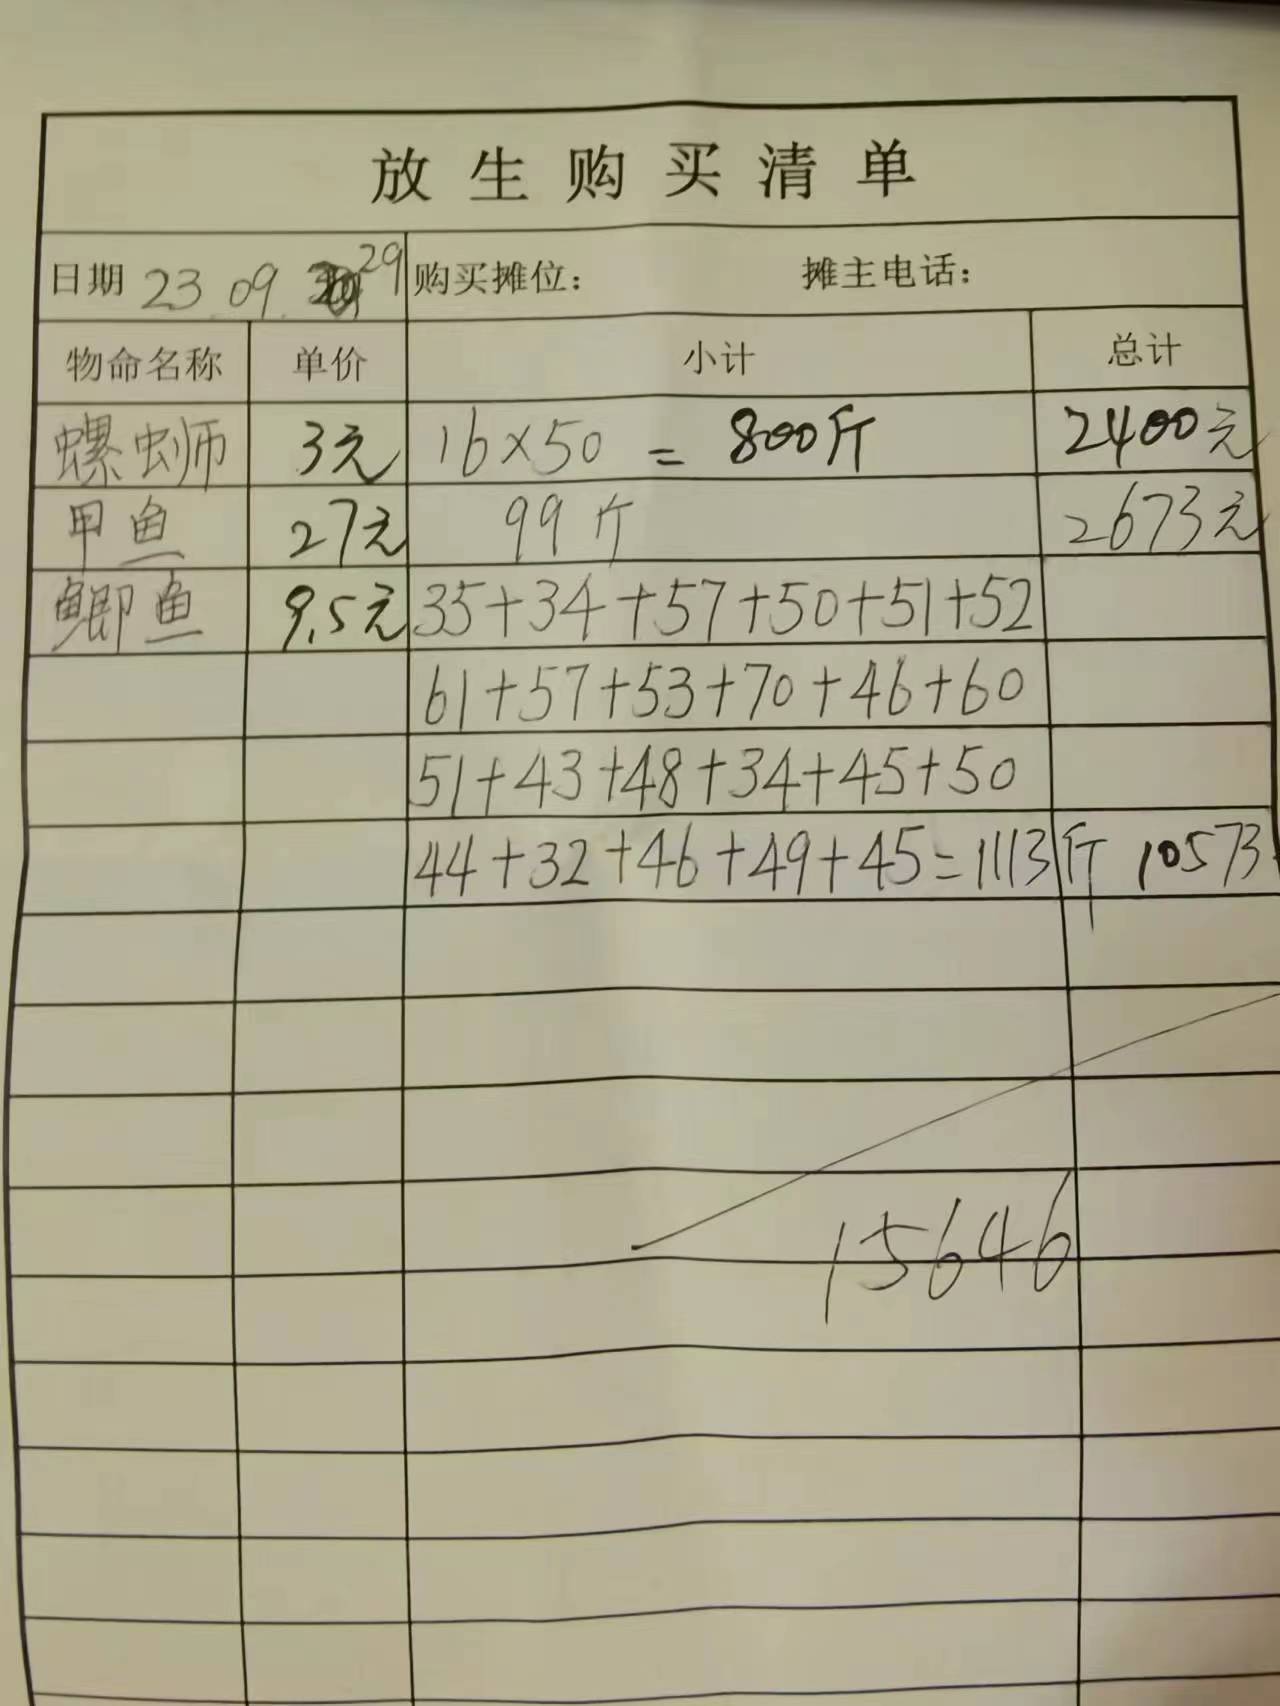 放生购买清单
日期 23.09.29 购买摊位： 摊主电话：
物命名称 单价 小计 总计
螺蛳 3元 16×50 = 800斤 2400元
甲鱼 27元 99斤 2673元
鲫鱼 9.5元 35+34+57+50+51+52
61+57+53+70+46+60
51+43+48+34+45+50
44+32+46+49+45=1113斤 10573
15646